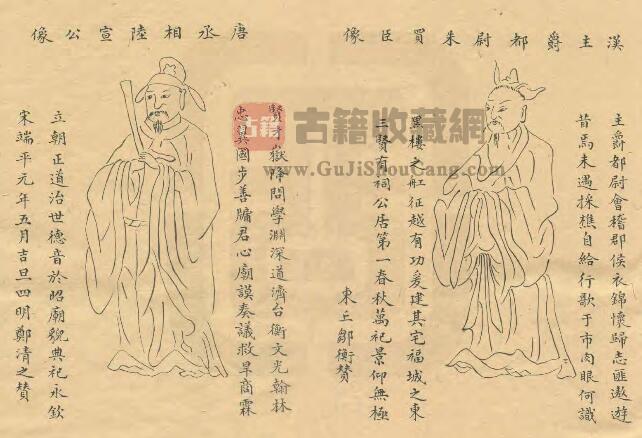 漢主爵都尉朱買臣像
主爵都尉會稽郡侯衣錦懷歸志匪遨遊
昔焉未遇採樵自給行歌于市肉眼何識
黑樓之舡征越有功爰建其宅福城之東
三賢有祠公居第一春秋萬祀景仰無極
東丘鄒衡贊
唐丞相陸宣公像
賢才嶽降問學淵深道濟台衡文光翰林
忠國步善牖君心廟謨奏議救旱商霖
立朝正道治世德音於昭廟貌典祀永欽
宋端平元年五月吉旦四明鄭清之贊
古籍
古籍收藏網
www.GuJiShouCang.com